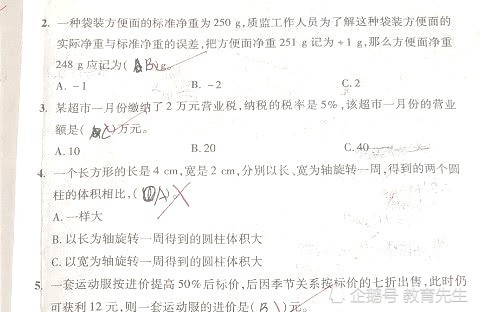 2. 一种袋装方便面的标准净重为250 g,质监工作人员为了解这种袋装方便面的
实际净重与标准净重的误差,把方便面净重251 g记为+1 g,那么方便面净重
248 g应记为( B )g。
A. -1 B. -2 C. 2
3. 某超市一月份缴纳了2万元营业税,纳税的税率是5%,该超市一月份的营业
额是( C )万元。
A. 10 B. 20 C. 40
4. 一个长方形的长是4 cm,宽是2 cm,分别以长、宽为轴旋转一周,得到的两个圆
柱的体积相比,( A )。
A. 一样大
B. 以长为轴旋转一周得到的圆柱体积大
C. 以宽为轴旋转一周得到的圆柱体积大
5. 一套运动服按进价提高50%后标价,后因季节关系按标价的七折出售,此时仍
可获利12元,则一套运动服的进价是( B )元。
企鹅号 教育先生